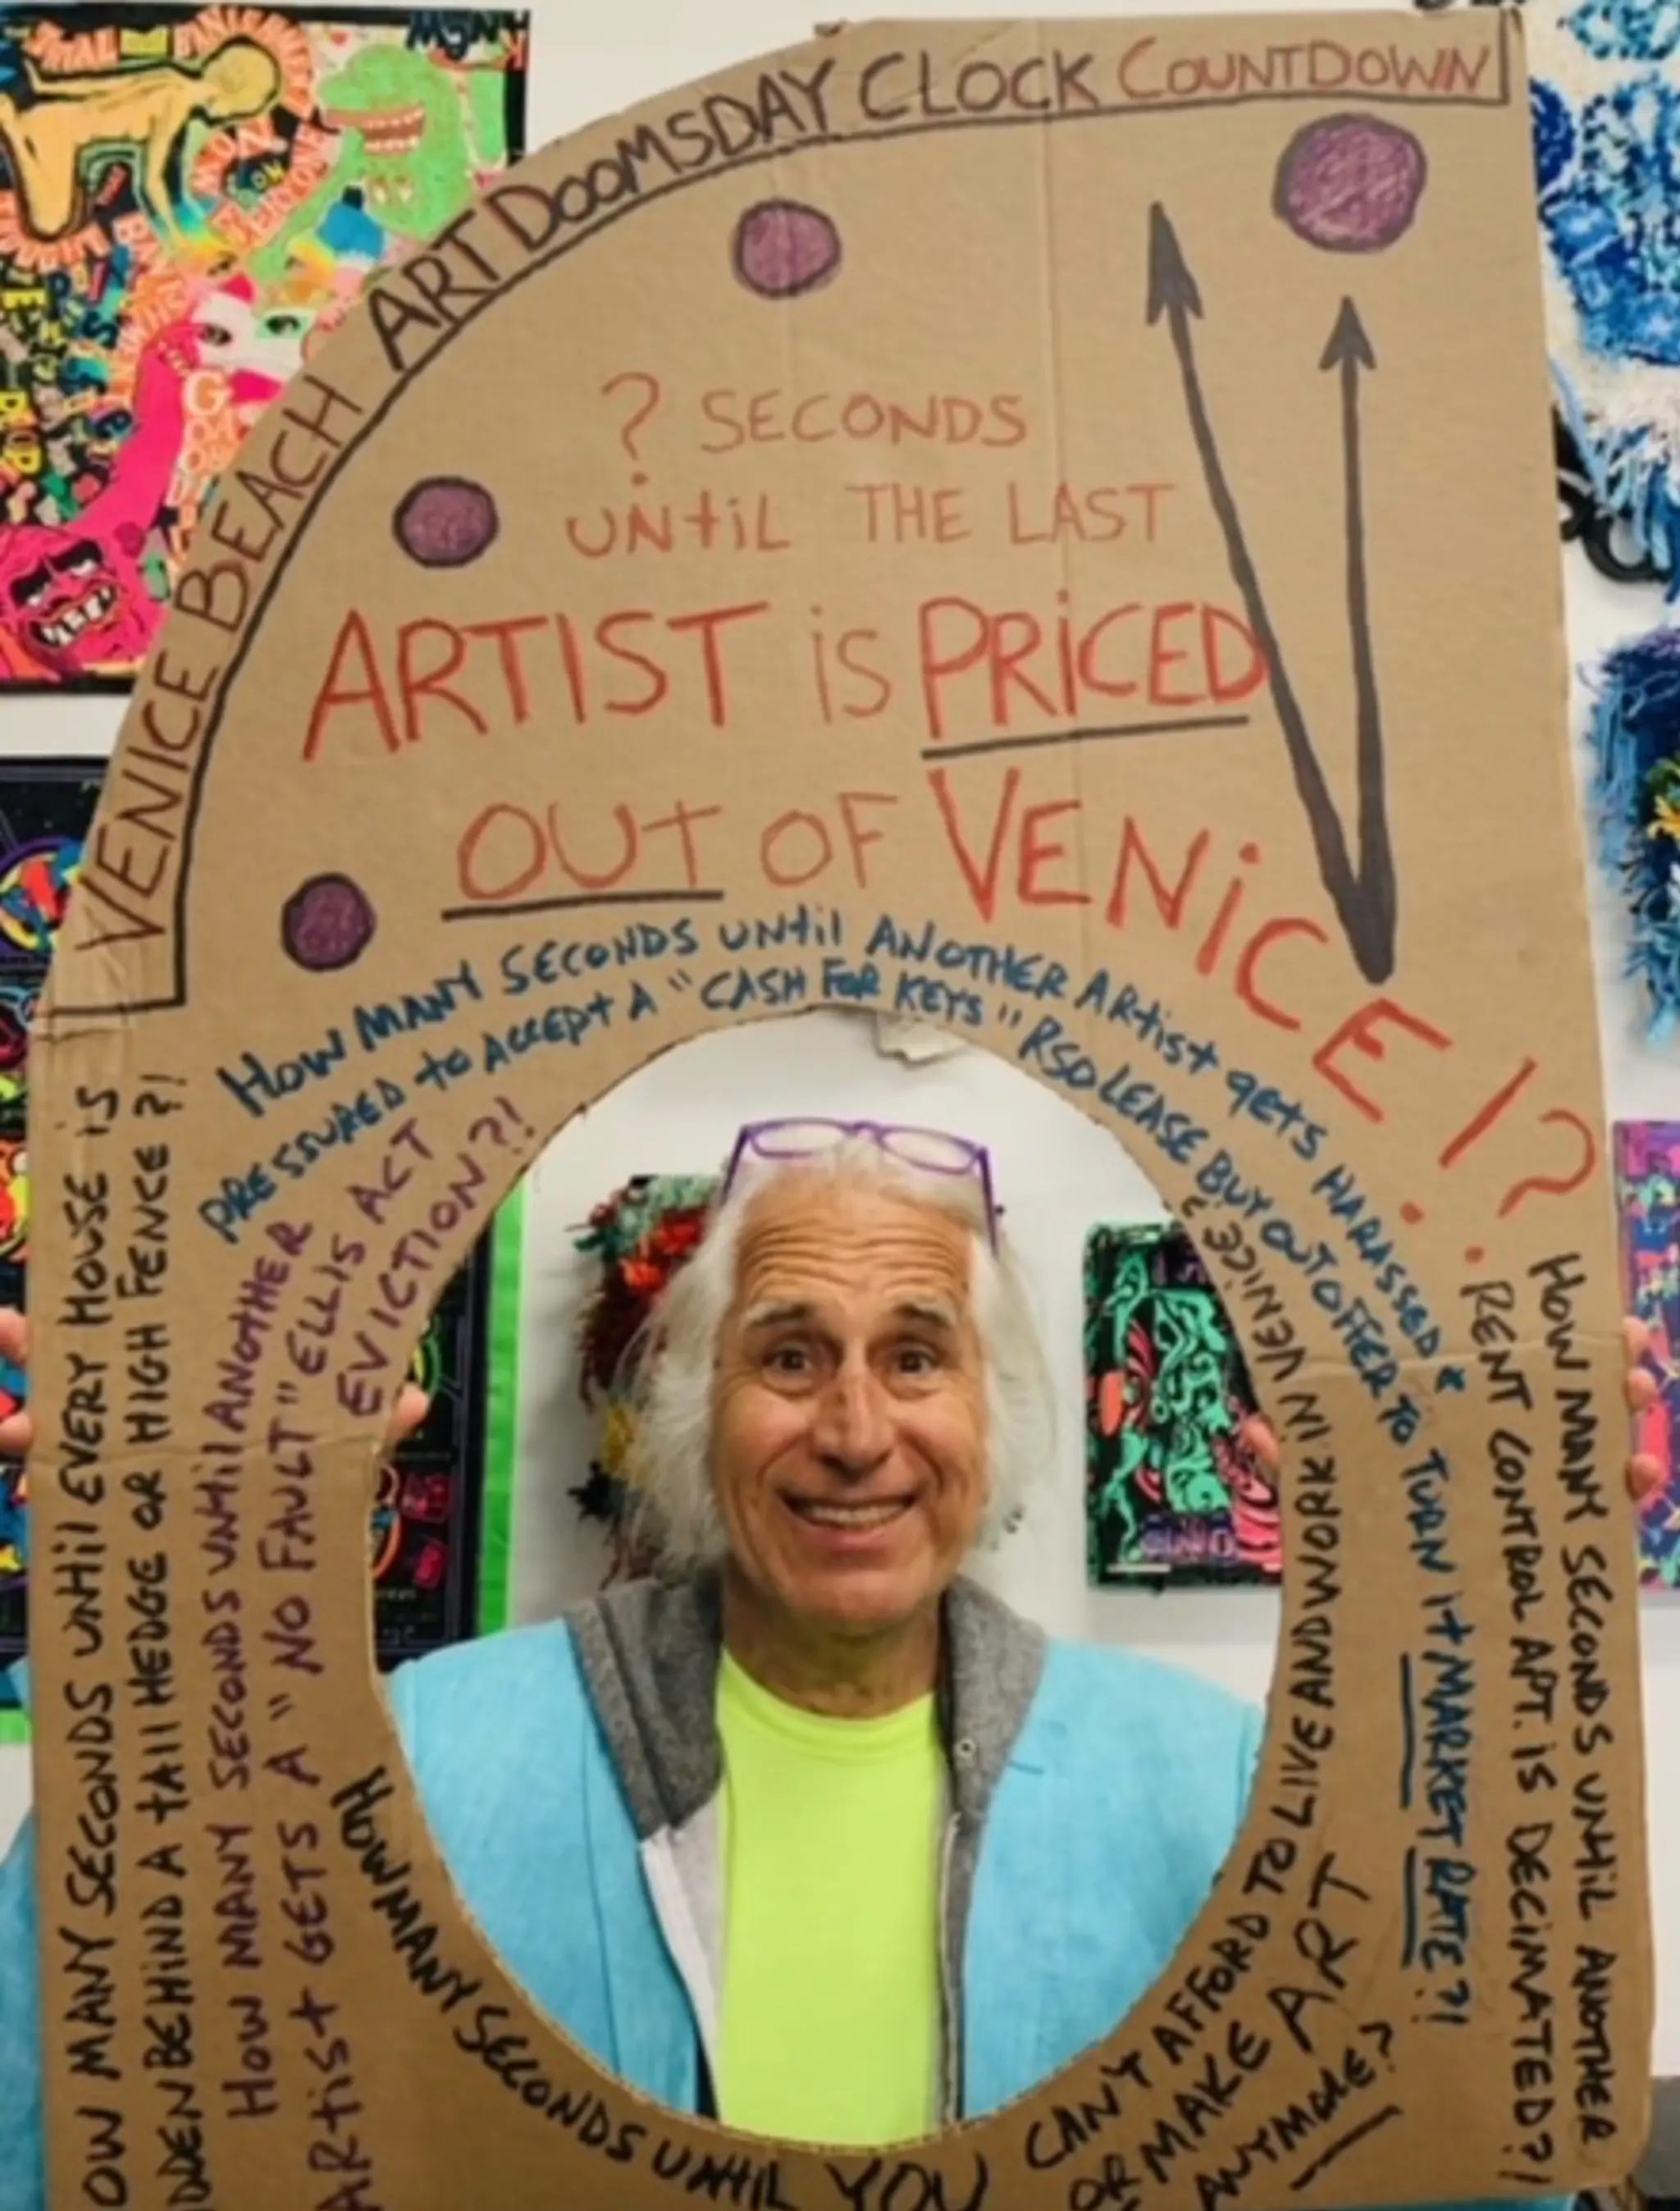 VENICE BEACH ART DOOMSDAY CLOCK COUNTDOWN
? SECONDS
UNtiL THE LAST
ARTIST iS PRiCED
OUT OF VENiCE!?
HOW MANY SECONDS UNtil ANOTHER ARtist gETS HARASSED &
PRESSURED to ACCEPT A "CASH FOR KEYS" RSO LEASE BUY OUT OFFER TO TURN it MARKET RATE?!
OW MANY SECONDS UNtil EVERY HOUSE iS
DDEN BEHIND A tAll HEDGE OR HIGH FENCE?!
HOW MANY SECONDS UNtil ANOTHER
ARTiSt GETS A "NO FAULT" ELLIS ACT
EVICTION?!
HOW MANY SECONDS UNtiL ANOTHER
RENT CONTROL APT. iS DECiMATED?!
HOW MANY SECONDS UNtiL YOU CAN'T AFFORD TO LIVE AND WORK iN VENiCE?
OR MAKE ART
ANYMORE?